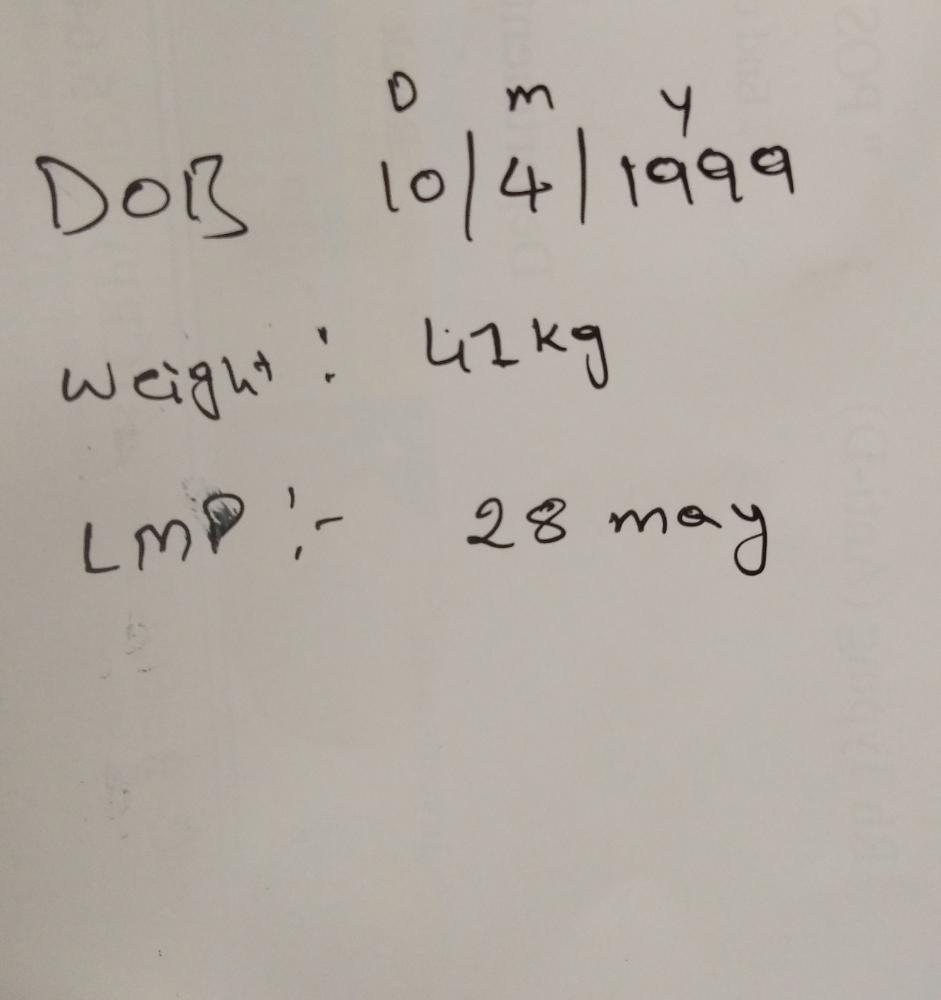 D m y
DOB 10/4/1999
Weight: 41kg
LMP :- 28 may